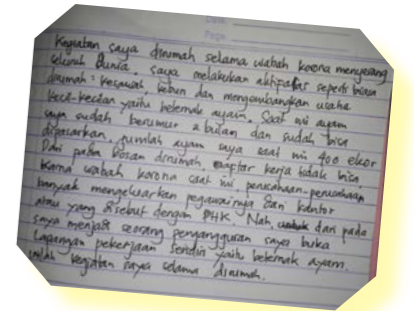 Date:
Page:
Kegiatan saya dirumah selama wabah korona menyerang
seluruh dunia. saya melakukan aktipafas seperti biasa
dirumah: kesawah, kebun dan mengembangkan usaha
kecil-kecilan yaitu beternak ayam. Saat ini ayam
saya sudah berumur 2 bulan dan sudah bisa
dipasarkan. jumlah ayam saya saat ini 400 ekor
Dari pada bosan dirumah, daftar kerja tidak bisa,
Karna wabah korona saat ini perusahaan-perusahaan
banyak mengeluarkan pegawainya dan kantor
atau yang disebut dengan PHK. Nah, dari pada
saya menjadi seorang pengangguran saya buka
lapangan pekerjaan sendiri yaitu beternak ayam.
inilah kegiatan saya selama dirumah.